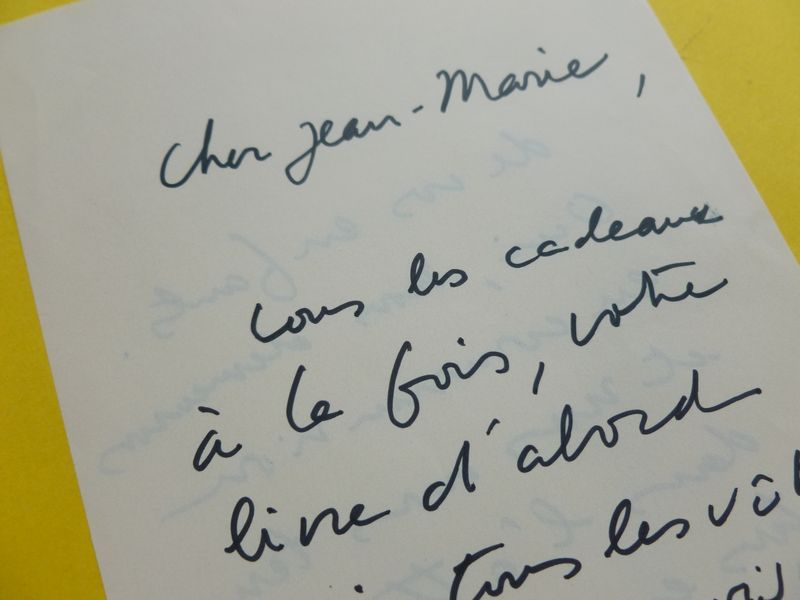 Cher Jean-Marie,
tous les cadeaux
à la fois, votre
livre d'abord
tous les vôt